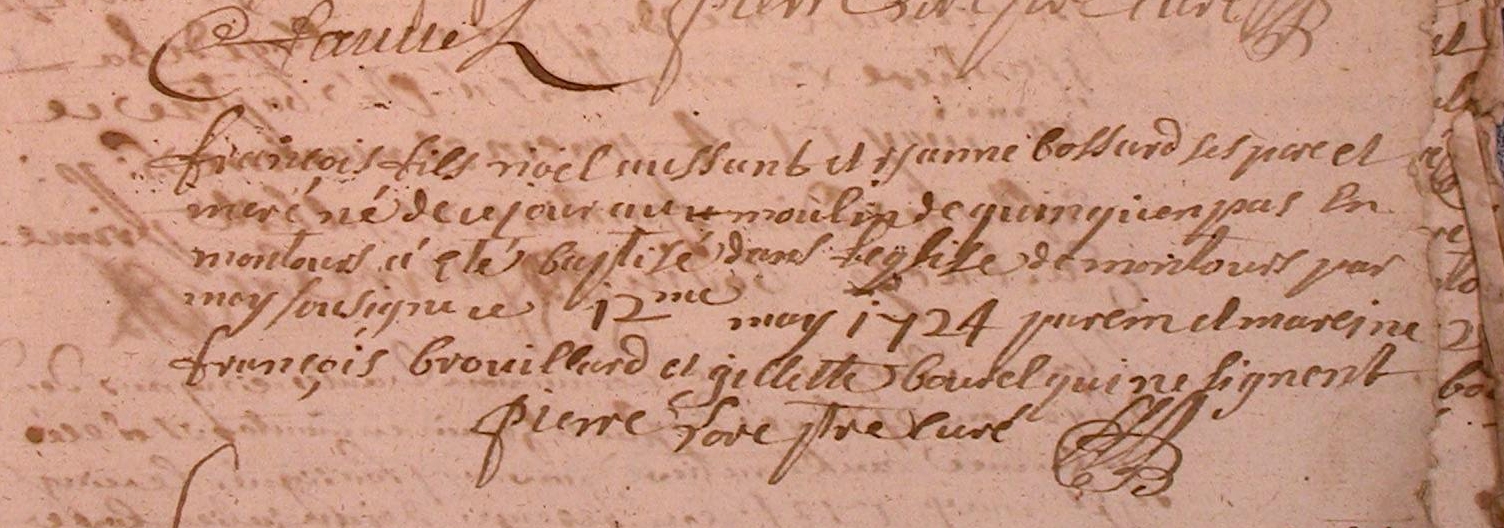 Pierre curé
françois fils noël aussant et jeanne bossard ses pere et
mere né de ce jour au moulin de quinquenpas En
montours a eté baptisé dans leglise de montours par
moy sousigne ce 12me may 1724 parein et mareine
françois brouillard et gillette bourel qui ne signent
pierre Pre Curé